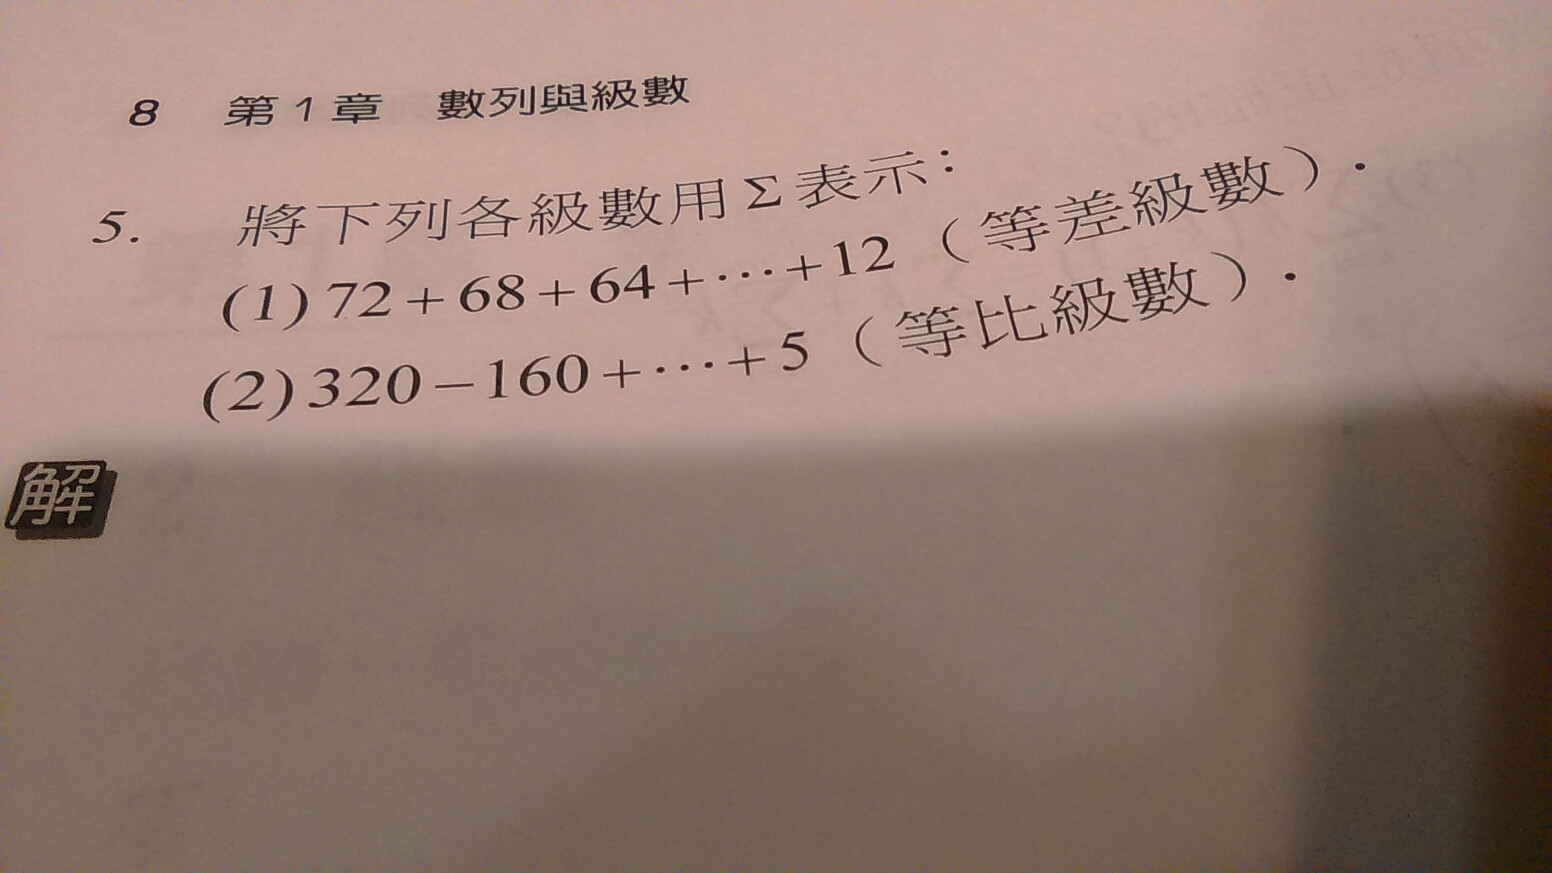 8 第1章 數列與級數
5. 將下列各級數用Σ表示:
(1)72+68+64+⋯+12(等差級數).
(2)320−160+⋯+5(等比級數).
解